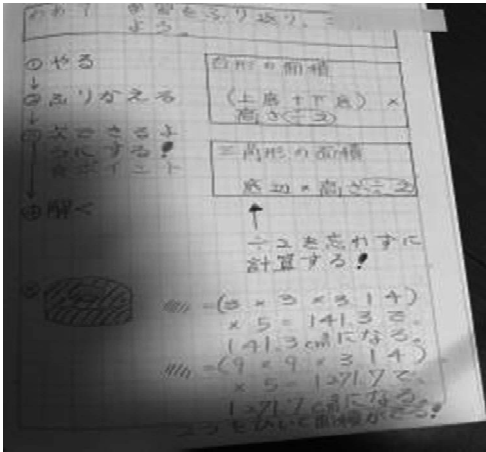 めあて 学習をふり返り、
よう。
①やる
↓
②ふりかえる
↓
うにする!
☆ポイント
↓
④解く
台形の面積
(上底+下底)×
高さ÷2
三角形の面積
底辺×高さ÷2
↑
÷2を忘れずに
計算する!
=(3×3×3.14)
×5=141.3で、
141.3㎤になる。
=(9×9×3.14)
×5=1271.7で、
1271.7㎤になる。